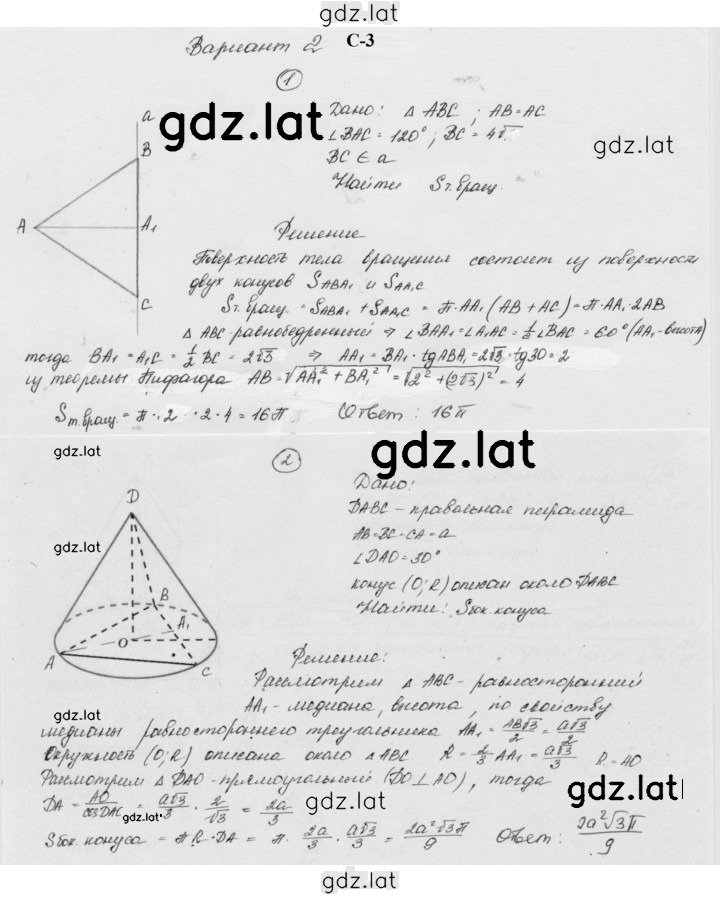 gdz.lat
Вариант 2 С-3
1
gdz.lat
gdz.lat
Дано: △ ABC ; AB=AC
∠BAC = 120° ; BC = 4√
BC ∈ a
Найти Sт.вращ.
a
B
A
A₁
C
Решение
Поверхность тела вращения состоит из поверхности
двух конусов SABA₁ и SAA₁C
Sт.вращ. = SABA₁ + SAA₁C = π·AA₁(AB+AC) = π·AA₁·2AB
△ ABC-равнобедренный ⇒ ∠BAA₁=∠A₁AC = ½∠BAC = 60° (AA₁-высота)
тогда BA₁ = A₁C = ½ BC = 2√3 ⇒ AA₁ = BA₁ · tgABA₁ = 2√3 · tg30 = 2
из теоремы Пифагора AB = √AA₁² + BA₁² = √2² + (2√3)² = 4
Sт.вращ. = π · 2 · 2 · 4 = 16π Ответ: 16π
gdz.lat
2
gdz.lat
Дано:
DABC – правильная пирамида
AB=BC=CA=a
∠DAO=30°
конус (O;R) описан около DABC
Найти: Sбок. конуса
D
gdz.lat
B
A₁
O
A
C
Решение:
Рассмотрим △ ABC - равносторонний
AA₁ - медиана, высота, по свойству
gdz.lat
медианы равностороннего треугольника AA₁ = AB√3/2 = a√3/2
Окружность (O;R) описана около △ABC R = 2/3 AA₁ = a√3/3 R=AO
Рассмотрим △ DAO-прямоугольный (DO⊥AO), тогда
DA = AO/cosDAC = a√3/3 · 2/√3 = 2a/3
gdz.lat
gdz.lat
gdz.lat
Sбок. конуса = πR·DA = π · 2a/3 · a√3/3 = 2a²√3π/9 Ответ: 2a²√3π/9
gdz.lat